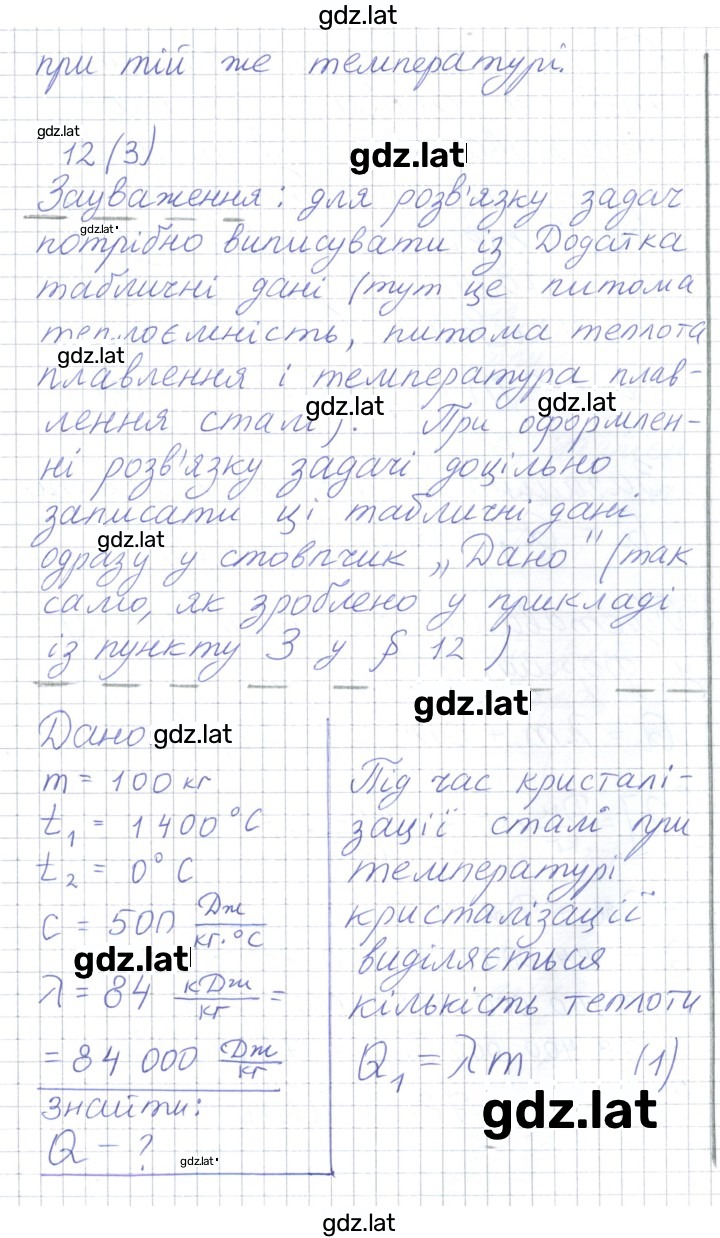 gdz.lat
при тій же температурі.
gdz.lat
12 (3)
gdz.lat
Зауваження: для розв'язку задач
gdz.lat
потрібно виписувати із Додатка
табличні дані (тут це питома
теплоємність, питома теплота
gdz.lat
плавлення і температура плав-
gdz.lat
gdz.lat
лення сталі). При оформлен-
ні розв'язку задачі доцільно
записати ці табличні дані
gdz.lat
одразу у стовпчик „Дано" (так
само, як зроблено у прикладі
із пункту 3 у § 12 )
gdz.lat
Дано
gdz.lat
m = 100 кг
t₁ = 1400 °C
t₂ = 0° C
c = 500 Дж/кг·°C
gdz.lat
λ = 84 кДж/кг =
= 84 000 Дж/кг
Знайти:
Q - ?
gdz.lat
Під час кристалі-
зації сталі при
температурі
кристалізації
виділяється
кількість теплоти
Q₁ = λm (1)
gdz.lat
gdz.lat